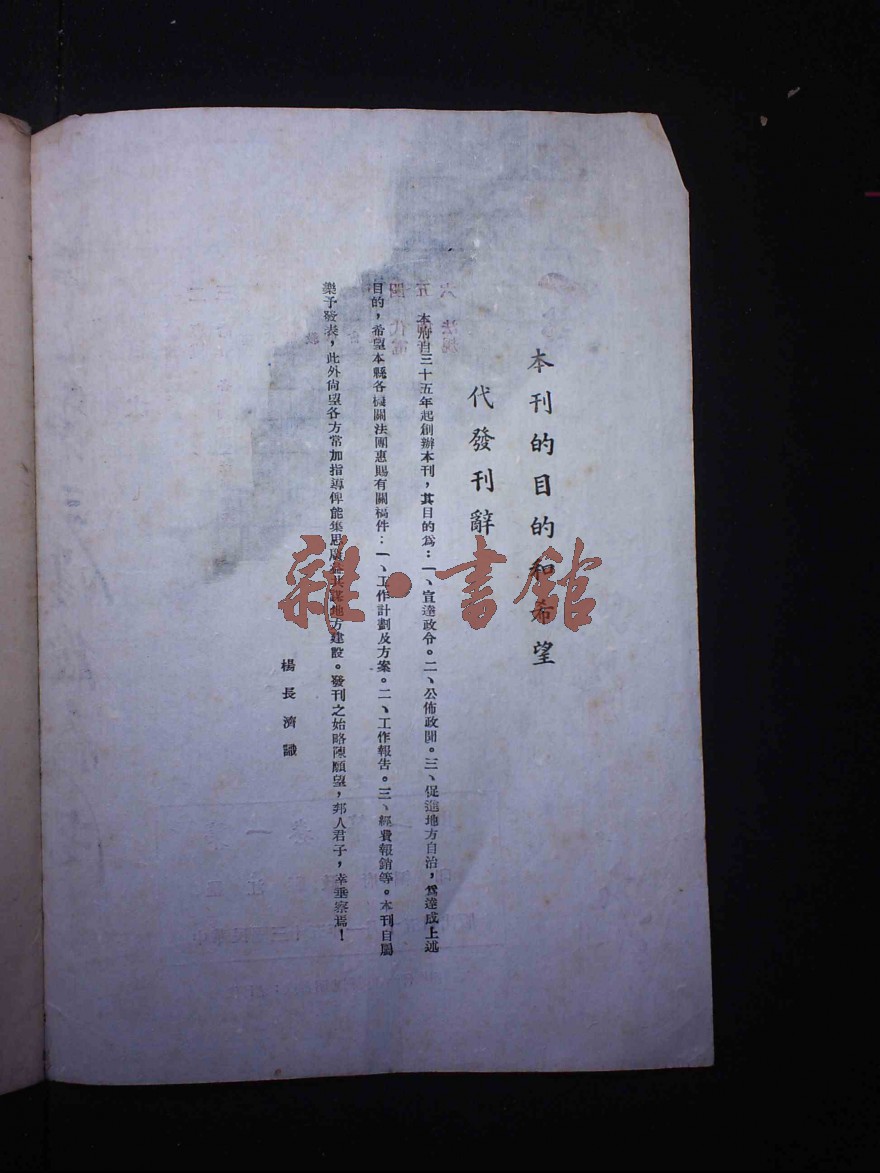 本刊的目的和希望
代發刊辭
本府自三十五年起創辦本刊，其目的為：一、宣達政令。二、公佈政聞。三、促進地方自治，為達成上述
目的，希望本縣各機關法團惠賜有關稿件：一、工作計劃及方案。二、工作報告。三、經費報銷等。本刊自屬
樂予發表，此外尙望各方常加指導俾能集思廣益共謀地方建設。發刊之始略陳願望，邦人君子，幸垂察焉！
楊長濟識
雜·書館